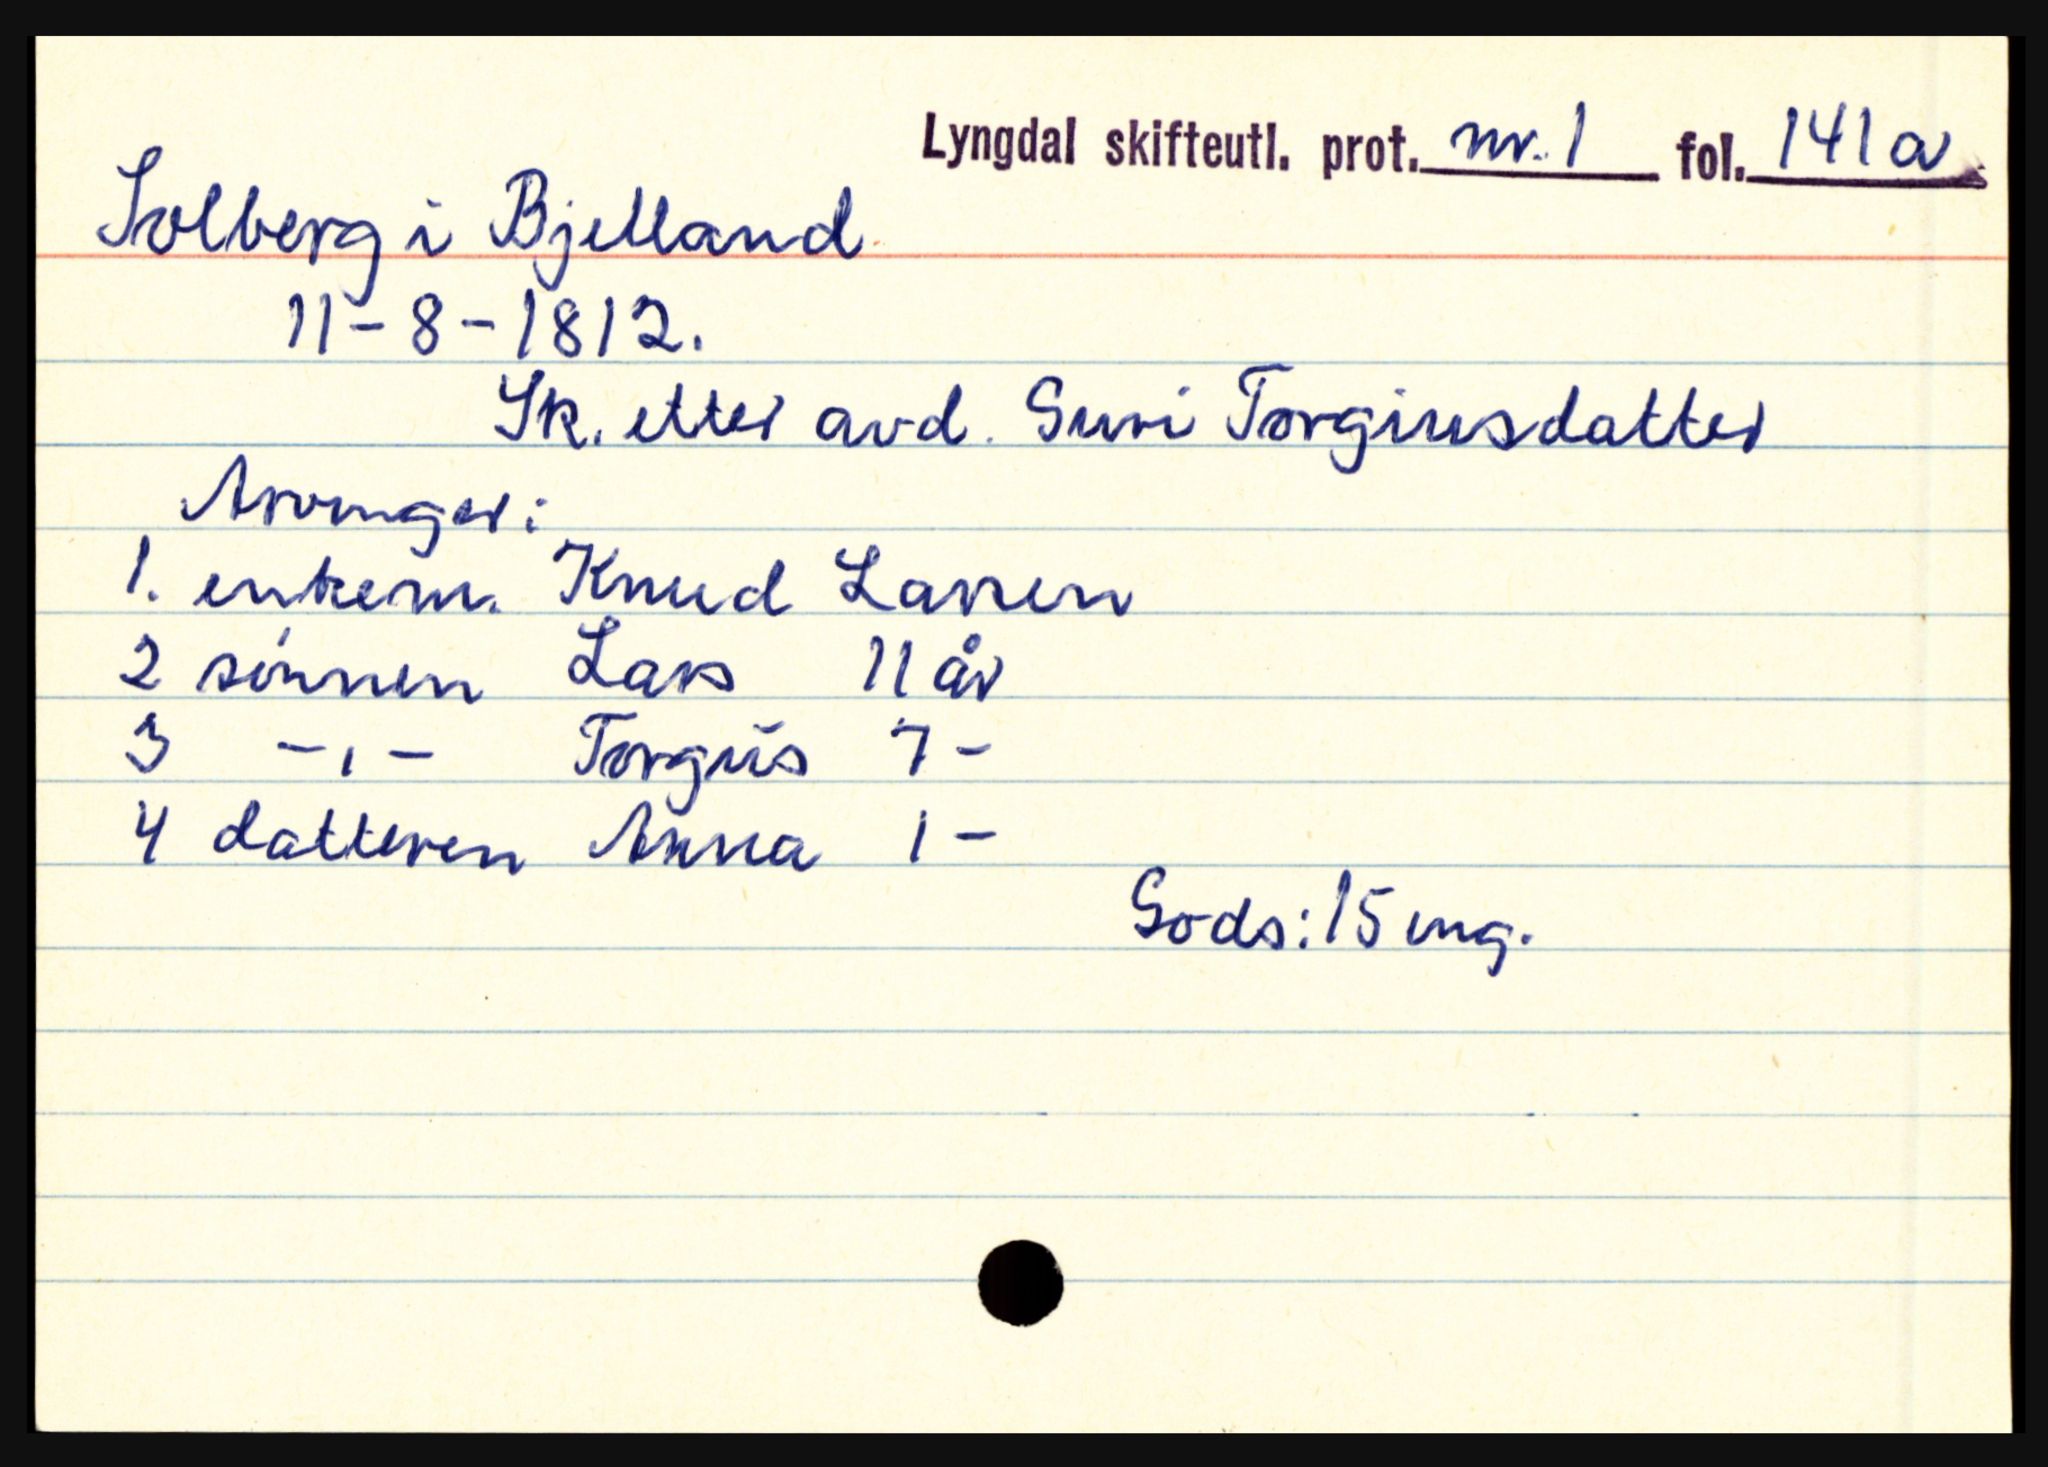 Lyngdal skifteutl. prot. nr. 1 fol. 141a
Solberg i Bjelland
11-8-1812.
Sk. etter avd. Guri Torgiusdatter
Arvinger:
1. enkem. Knud Larsen
2 sønnen Lars 11 år
3 -,- Torgius 7 -
4 datteren Anna 1 -
Gods: 15 mg.